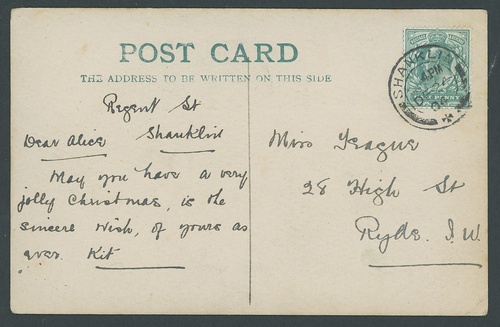 POST CARD
THE ADDRESS TO BE WRITTEN ON THIS SIDE
Regent St
Shanklin
Dear Alice
May you have a very
jolly Christmas, is the
sincere wish, of yours as
ever. Kit
Miss Teague
28 High St
Ryde. I.W.
SHANKLIN
PENNY